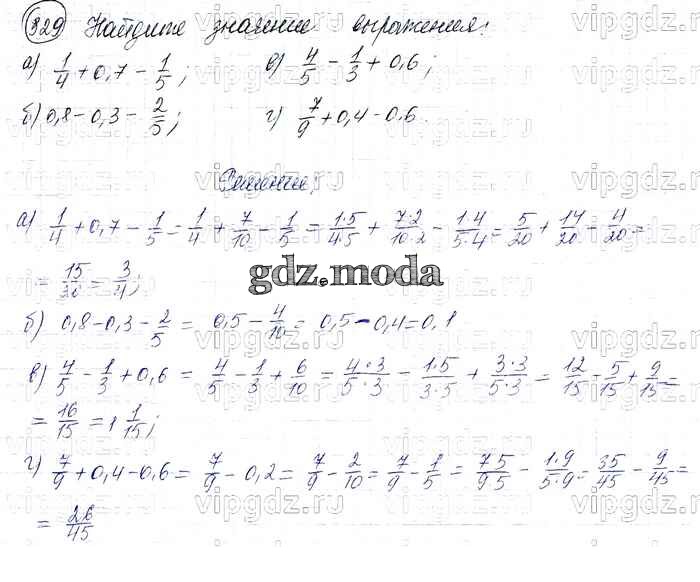 829 Найдите значение выражения:
а) 1/4 + 0,7 − 1/5; в) 4/5 − 1/3 + 0,6;
б) 0,8 − 0,3 − 2/5; г) 7/9 + 0,4 − 0,6.
Решение:
а) 1/4 + 0,7 − 1/5 = 1/4 + 7/10 − 1/5 = 1·5/4·5 + 7·2/10·2 − 1·4/5·4 = 5/20 + 14/20 − 4/20 =
= 15/20 = 3/4;
gdz.moda
б) 0,8 − 0,3 − 2/5 = 0,5 − 4/10 = 0,5 − 0,4 = 0,1
в) 4/5 − 1/3 + 0,6 = 4/5 − 1/3 + 6/10 = 4·3/5·3 − 1·5/3·5 + 3·3/5·3 = 12/15 − 5/15 + 9/15 =
= 16/15 = 1 1/15;
г) 7/9 + 0,4 − 0,6 = 7/9 − 0,2 = 7/9 − 2/10 = 7/9 − 1/5 = 7·5/9·5 − 1·9/5·9 = 35/45 − 9/45 =
= 26/45
vipgdz.ru